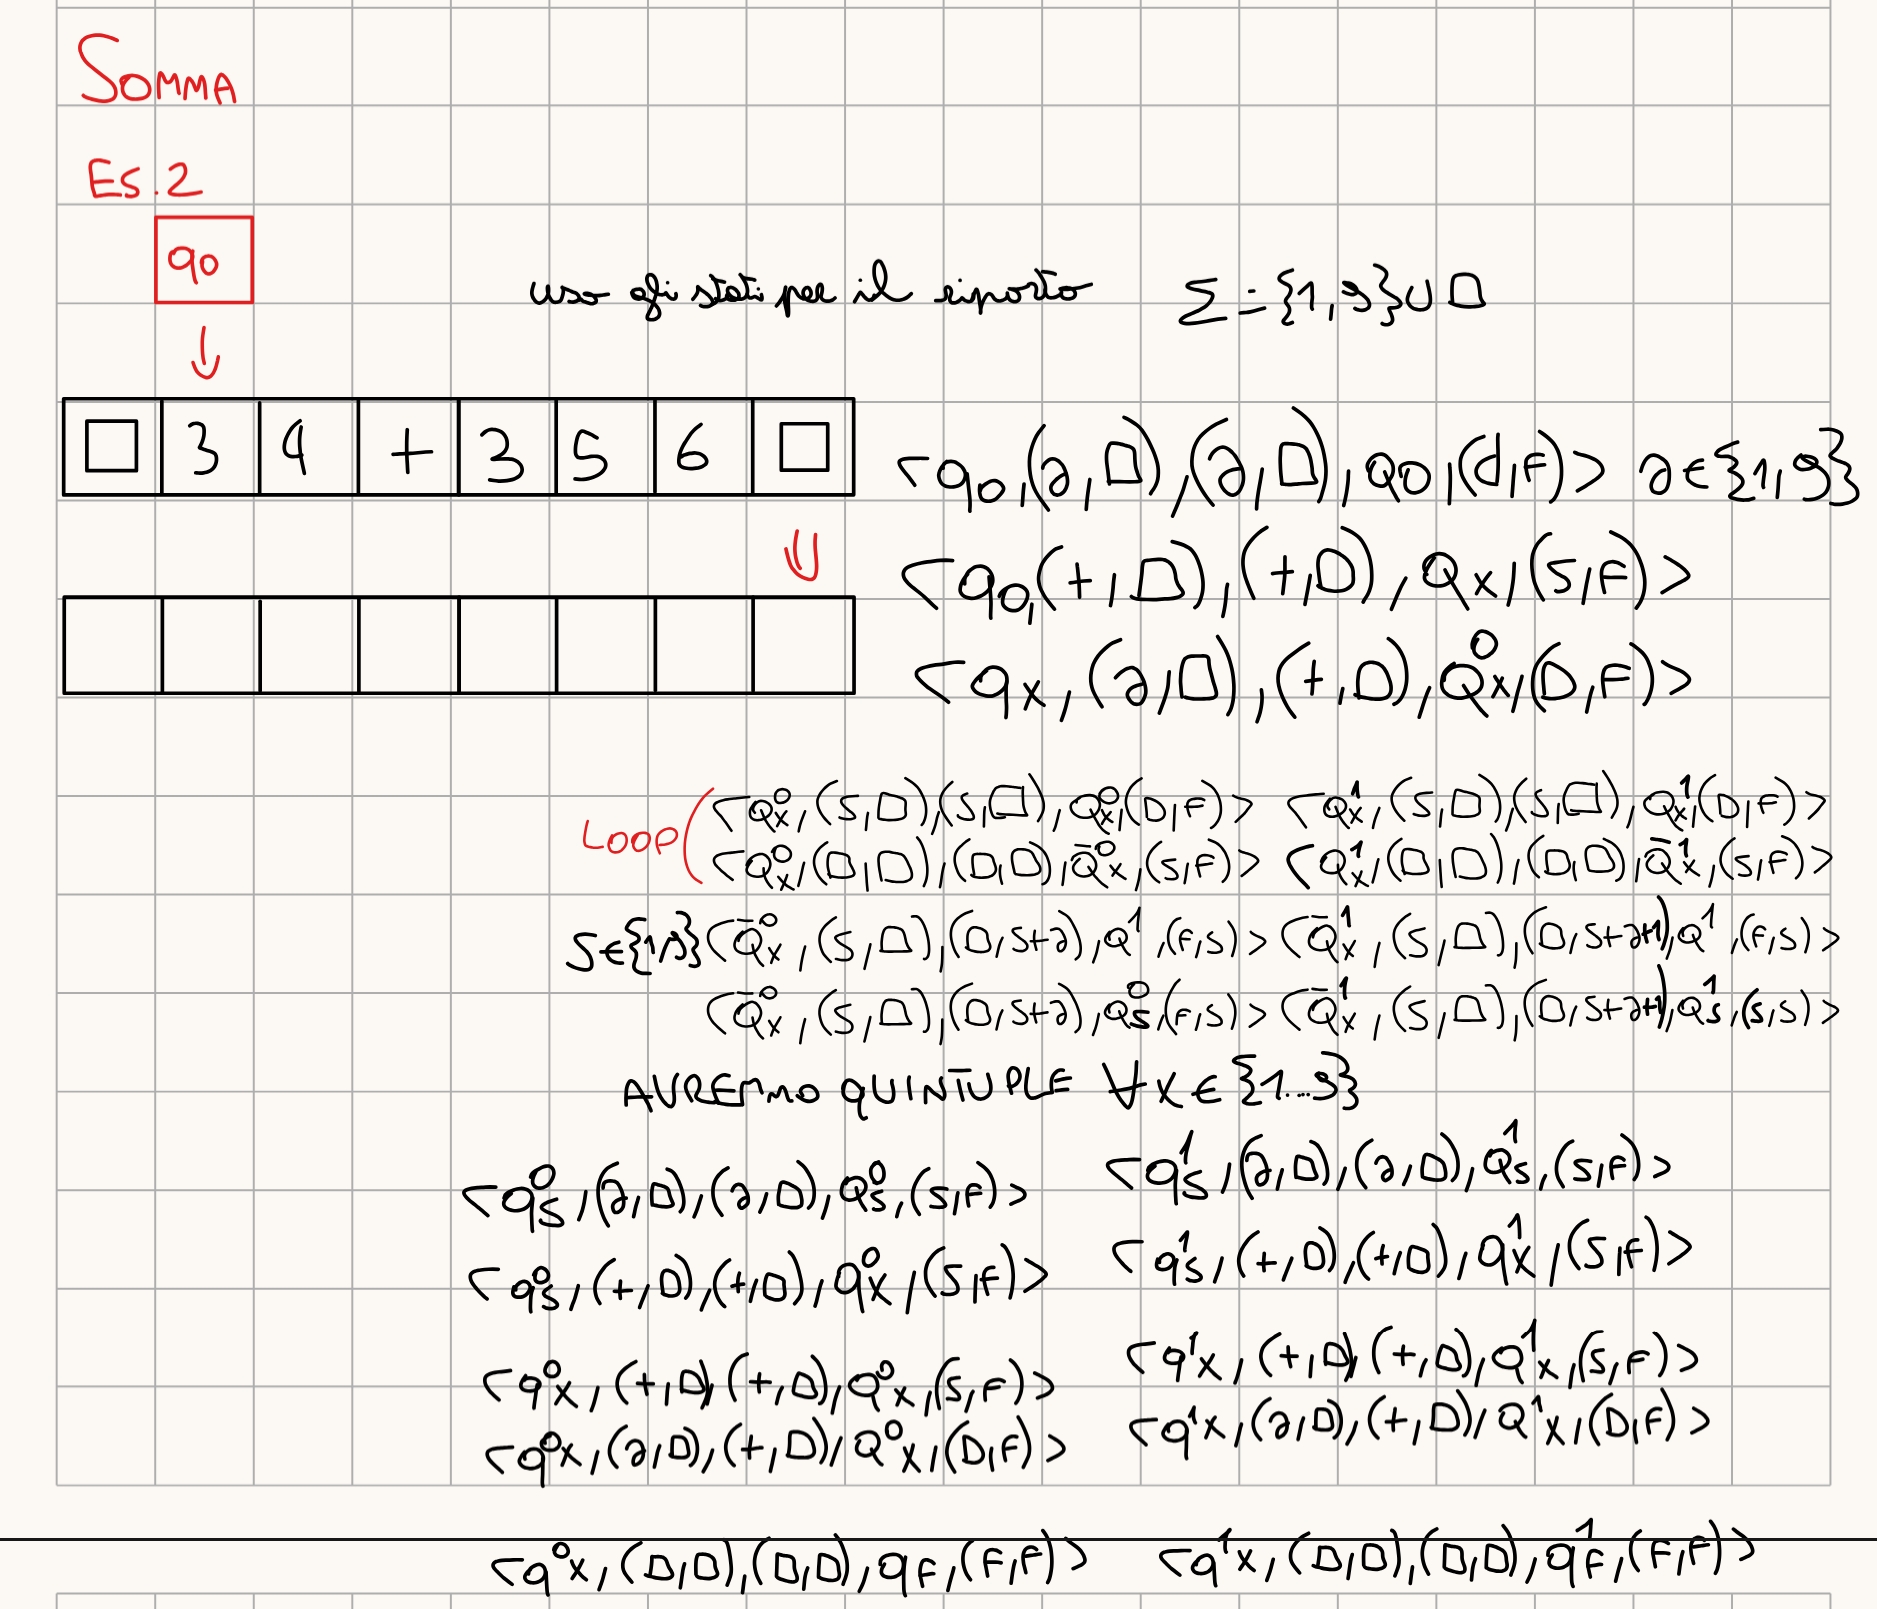 SOMMA
Es.2
q0
uso gli stati per il riporto Σ = {1,9} ∪ □
□ 3 4 + 3 5 6 □
<q0,(a,□),(a,□),Q0,(d,F)> a ∈ {1,9}
<q0,(+,□),(+,□),Qx,(S,F)>
<qx,(a,□),(+,□),Q⁰x,(D,F)>
LOOP
<Q⁰x,(S,□),(S,□),Q⁰x,(D,F)> <Q¹x,(S,□),(S,□),Q¹x,(D,F)>
<Q⁰x,(□,□),(□,□),Q̄⁰x,(S,F)> <Q¹x,(□,□),(□,□),Q̄¹x,(S,F)>
S∈{1,9} <Q̄⁰x,(S,□),(□,S+a),Q¹,(F,S)> <Q̄¹x,(S,□),(□,S+a+1),Q¹,(F,S)>
<Q̄⁰x,(S,□),(□,S+a),Q⁰s,(F,S)> <Q̄¹x,(S,□),(□,S+a+1),Q¹s,(S,S)>
AVREMMO QUINTUPLE ∀x∈{1...9}
<q⁰s,(a,□),(a,□),Q⁰s,(S,F)> <q¹s,(a,□),(a,□),Q¹s,(S,F)>
<q⁰s,(+,□),(+,□),q⁰x,(S,F)> <q¹s,(+,□),(+,□),q¹x,(S,F)>
<q⁰x,(+,□),(+,□),Q⁰x,(S,F)> <q¹x,(+,□),(+,□),Q¹x,(S,F)>
<q⁰x,(a,□),(+,□),Q⁰x,(D,F)> <q¹x,(a,□),(+,□),Q¹x,(D,F)>
<q⁰x,(□,□),(□,□),qF,(F,F)> <q¹x,(□,□),(□,□),q¹F,(F,F)>